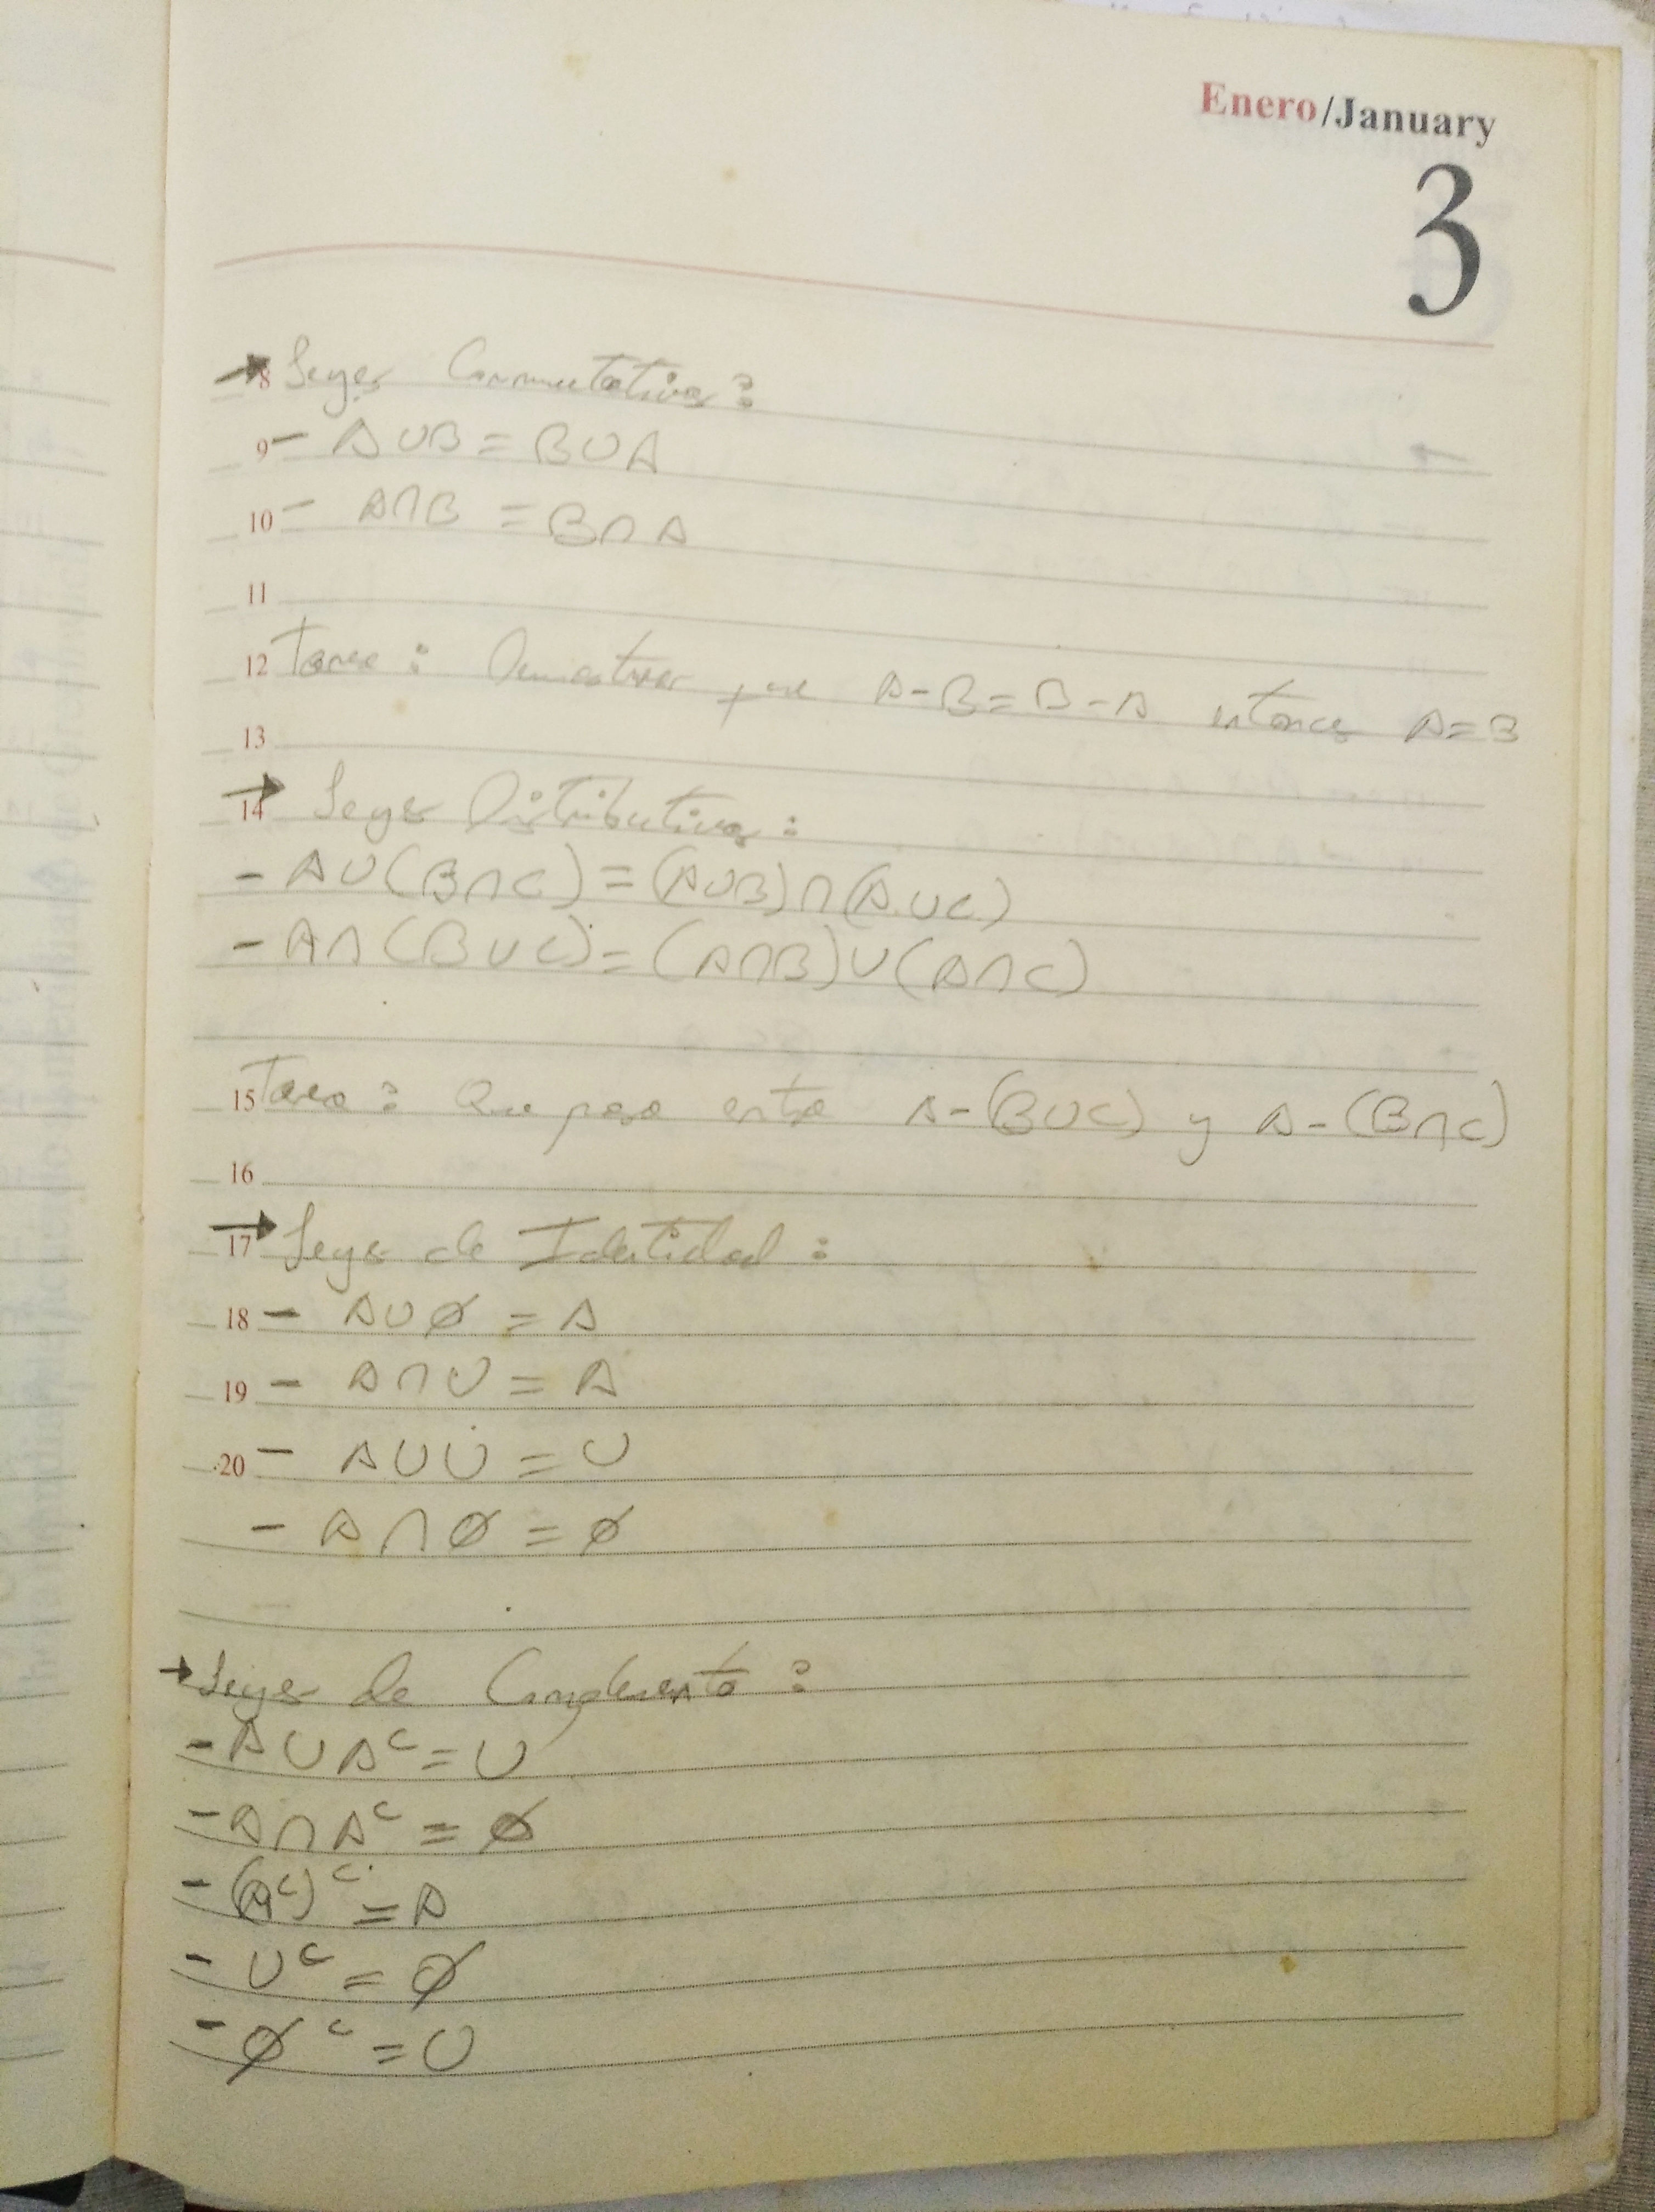 Enero/January
3
→ 8 Leyes Conmutativas:
9 - A∪B = B∪A
10 - A∩B = B∩A
11
12 Tarea: Demostrar que A-B=B-A entonces A=B
13
→ 14 Leyes Distributivas:
- A∪(B∩C) = (A∪B)∩(A∪C)
- A∩(B∪C) = (A∩B)∪(A∩C)
15 Tarea: Que pasa entre A-(B∪C) y A-(B∩C)
16
→ 17 Leyes de Identidad:
18 - A∪∅ = A
19 - A∩U = A
20 - A∪U = U
- A∩∅ = ∅
→ Leyes de Complemento:
- A∪Aᶜ = U
- A∩Aᶜ = ∅
- (Aᶜ)ᶜ = A
- Uᶜ = ∅
- ∅ᶜ = U